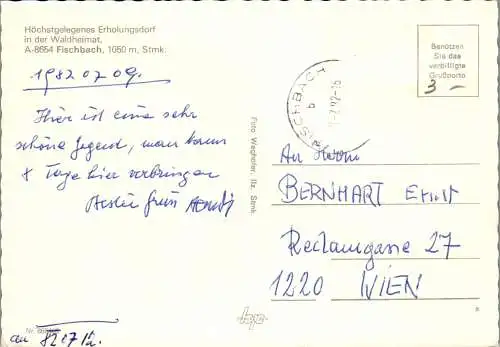 Höchstgelegenes Erholungsdorf
in der Waldheimat,
A-8654 Fischbach, 1050 m, Stmk.
1982 07 09.
Hier ist eine sehr
schöne Gegend, man kann
8 Tage hier verbringen
Beste Grüße
an 8207 12.
Foto Waghofer, Ilz, Stmk.
FISCHBACH
b
Benützen
Sie das
verbilligte
Grußporto
3 -
An Herrn
BERNHART Ernst
Reclamgasse 27
1220 WIEN